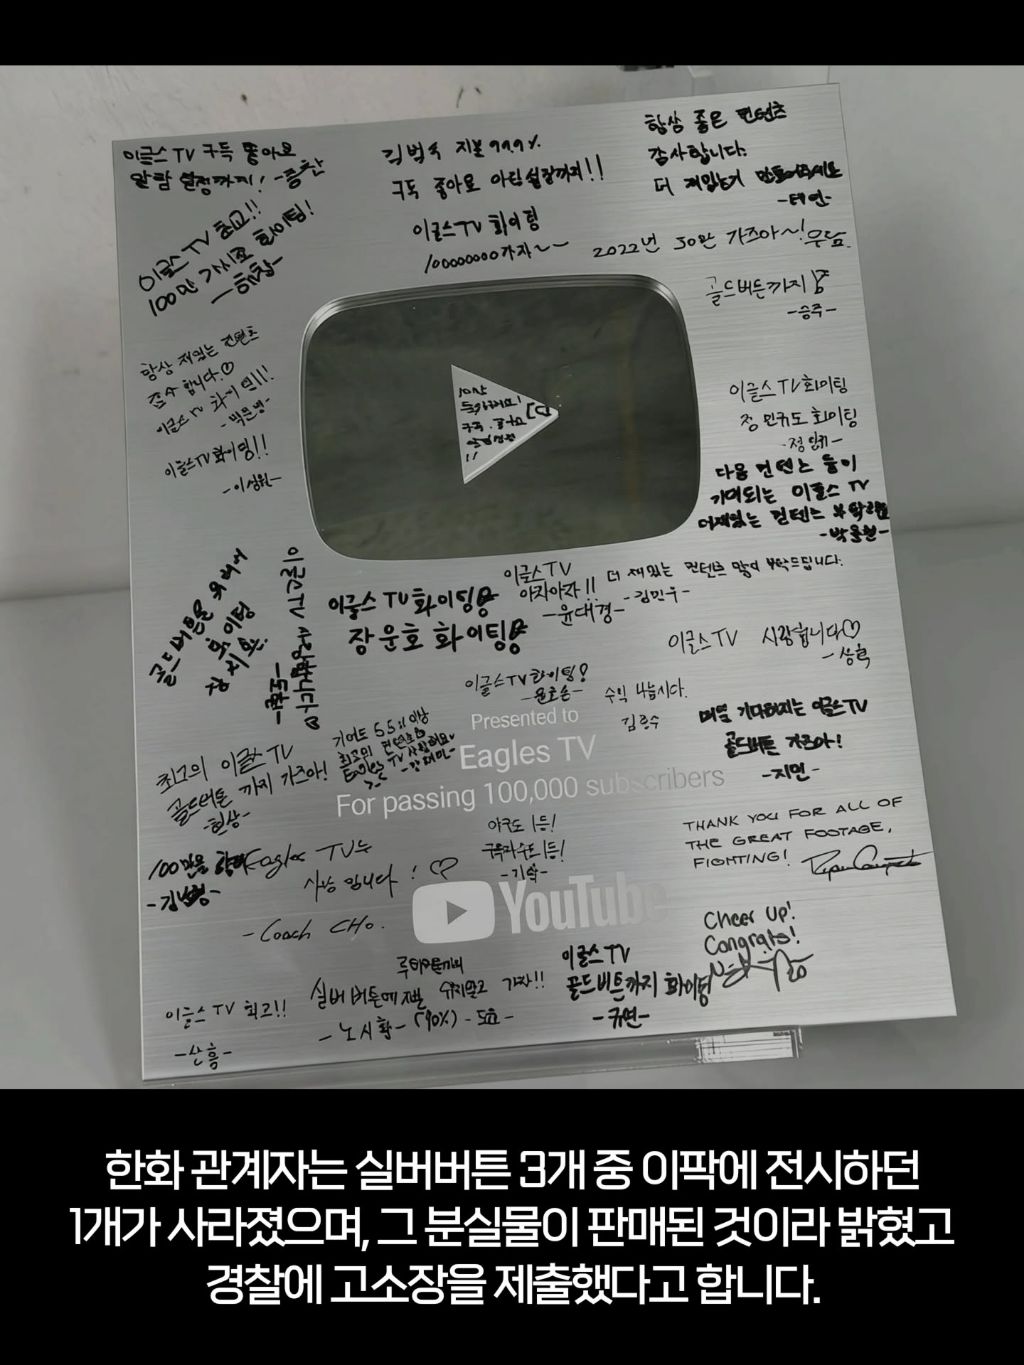 이글스 TV 구독 좋아요
알람 설정까지!
김범수 지분 99.9%
구독 좋아요 알림설정까지!!
항상 좋은 컨텐츠
감사합니다.
더 재밌는거 만들어주세요
-태연-
이글스TV 최고!!
100만 가시죠 화이팅!
이글스TV 화이팅
100000000가자~~
2022년 50만 가즈아~!
골드버튼까지
-승주-
항상 재밌는 컨텐츠
감사합니다.♡
이글스TV 화이팅!!!
이글스TV화이팅!!
-이성원-
이글스TV화이팅
정민규도 화이팅
-정민규-
다음 컨텐츠들이
기대되는 이글스 TV
더재밌는 컨텐츠 부탁해요
구독
골드버튼을 위하여
화이팅
이글스TV 사랑합니다♡
이글스 TV화이팅
장운호 화이팅
이글스TV
아자아자!!
-윤대경-
더 재밌는 컨텐츠 많이 부탁드립니다.
-김민우-
이글스TV 사랑합니다♡
-상혁
이글스TV화이팅!
수익 나눕시다.
Presented to
Eagles TV
For passing 100,000 subscribers
매일 기다려지는 이글스TV
골드버튼 가즈아!
-지민-
최고의 이글스 TV
골드버튼 까지 가즈아!
-현상-
야구도 1등!
구독자수도 1등!
THANK YOU FOR ALL OF
THE GREAT FOOTAGE,
FIGHTING!
100만을 향해
Eagles TV는
사랑 입니다! ♡
-Coach CHO.
YouTube
Cheer Up!
Congrats!
이글스TV 최고!!
-산흠-
실버버튼에 가자!!
-노시환-(90%)-
이글스TV
골드버튼까지 화이팅
-규연-
한화 관계자는 실버버튼 3개 중 이팍에 전시하던
1개가 사라졌으며, 그 분실물이 판매된 것이라 밝혔고
경찰에 고소장을 제출했다고 합니다.